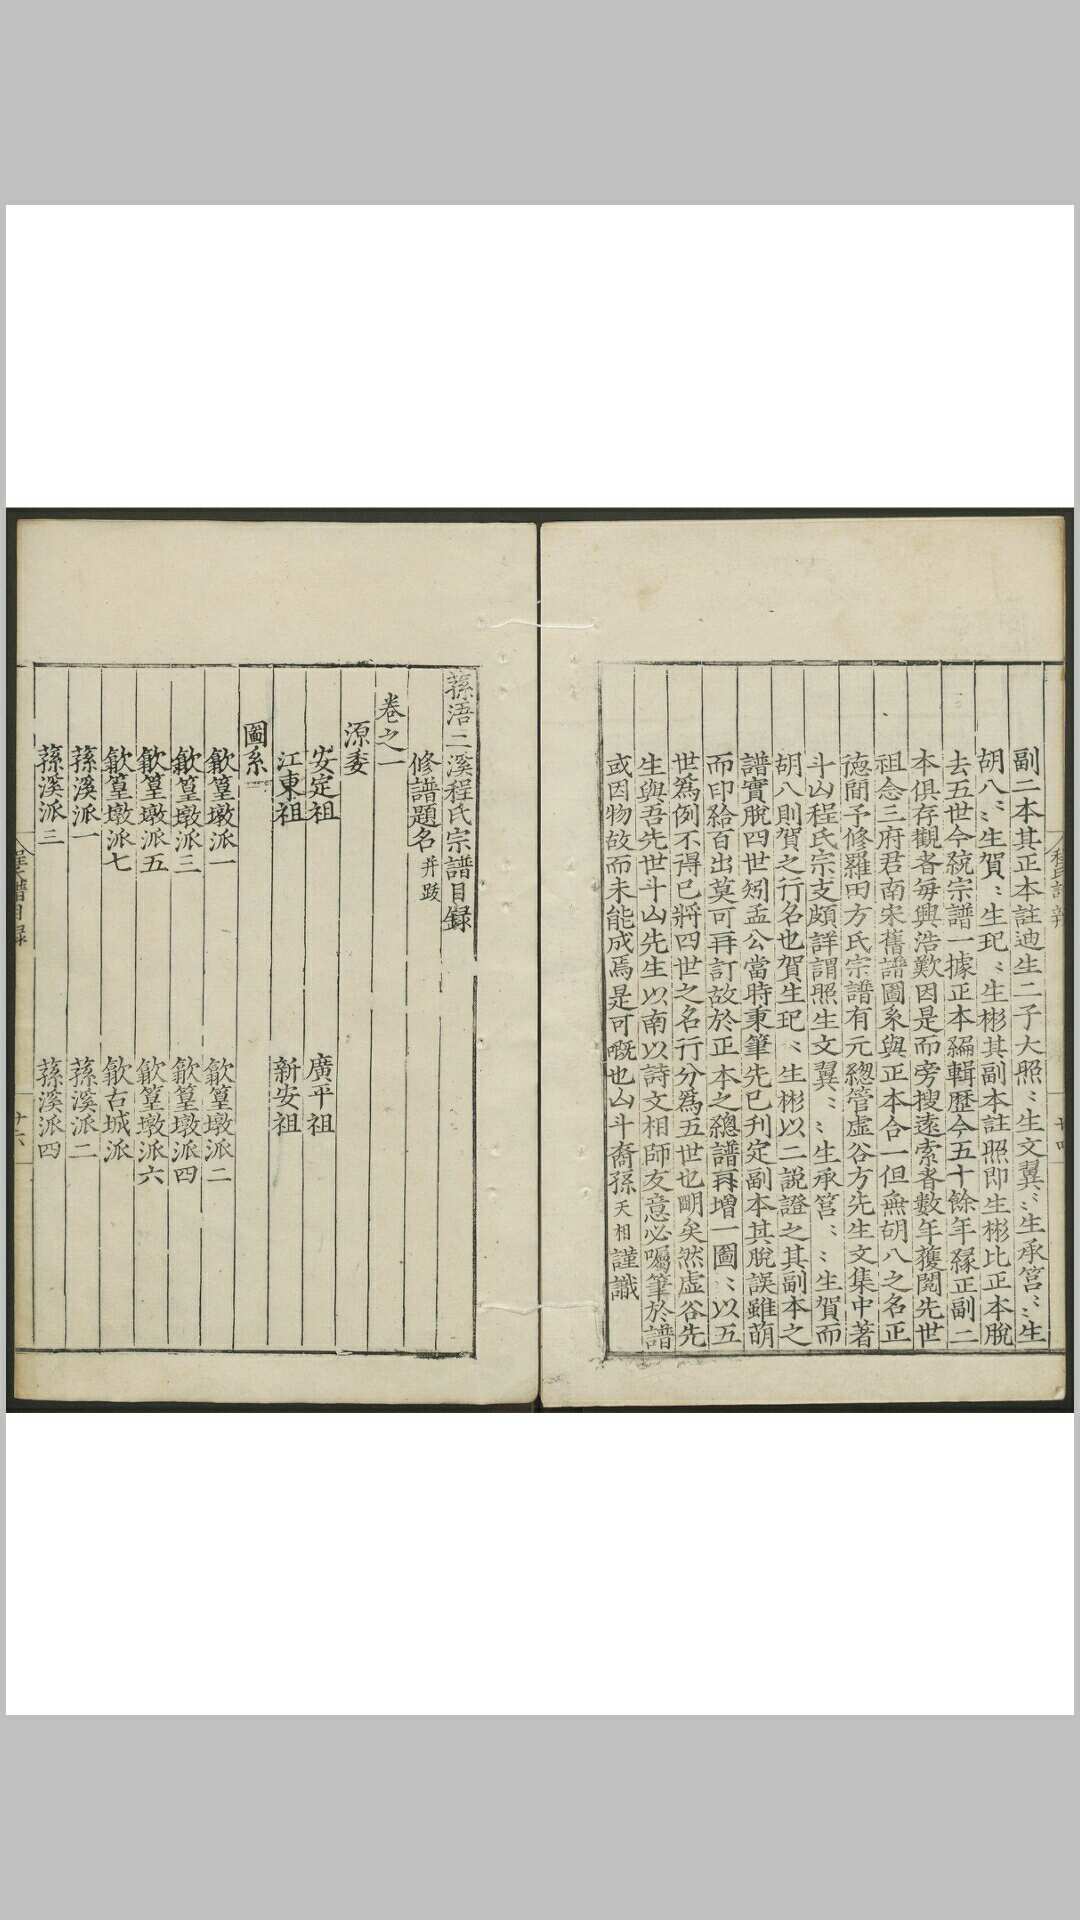 副二本其正本註迪生二子大照〻生文翼〻生承筥〻〻生
胡八〻生賀〻生玘〻生彬其副本註照即生彬比正本脫
去五世今統宗譜一據正本編輯歷今五十餘年縁正副二
本俱存觀者每興浩歎因是而旁搜遠索者數年獲閱先世
祖念三府君南宋舊譜圖系與正本合一但無胡八之名正
徳間予修羅田方氏宗譜有元總管虛谷方先生文集中著
斗山程氏宗支頗詳謂照生文翼〻〻生承筥〻〻生賀而
胡八則賀之行名也賀生玘〻生彬以二說證之其副本之
譜實脫四世矧孟公當時秉筆先已刋定副本其脫誤雖萌
而印給百出莫可再訂故於正本之總譜再增一圖〻以五
世爲例不得已將四世之名行分爲五世也明矣然虛谷先
生與吾先世斗山先生以南以詩文相師友意必囑筆於譜
或因物故而未能成焉是可嘅也山斗裔孫天相謹識
程氏譜辨
廿四
蓀浯二溪程氏宗譜目録
修譜題名并跋
卷之一
源委
安定祖 廣平祖
江東祖 新安祖
圖系
歙篁墩派一 歙篁墩派二
歙篁墩派三 歙篁墩派四
歙篁墩派五 歙篁墩派六
歙篁墩派七 歙古城派
蓀溪派一 蓀溪派二
蓀溪派三 蓀溪派四
程氏譜目録
廿六